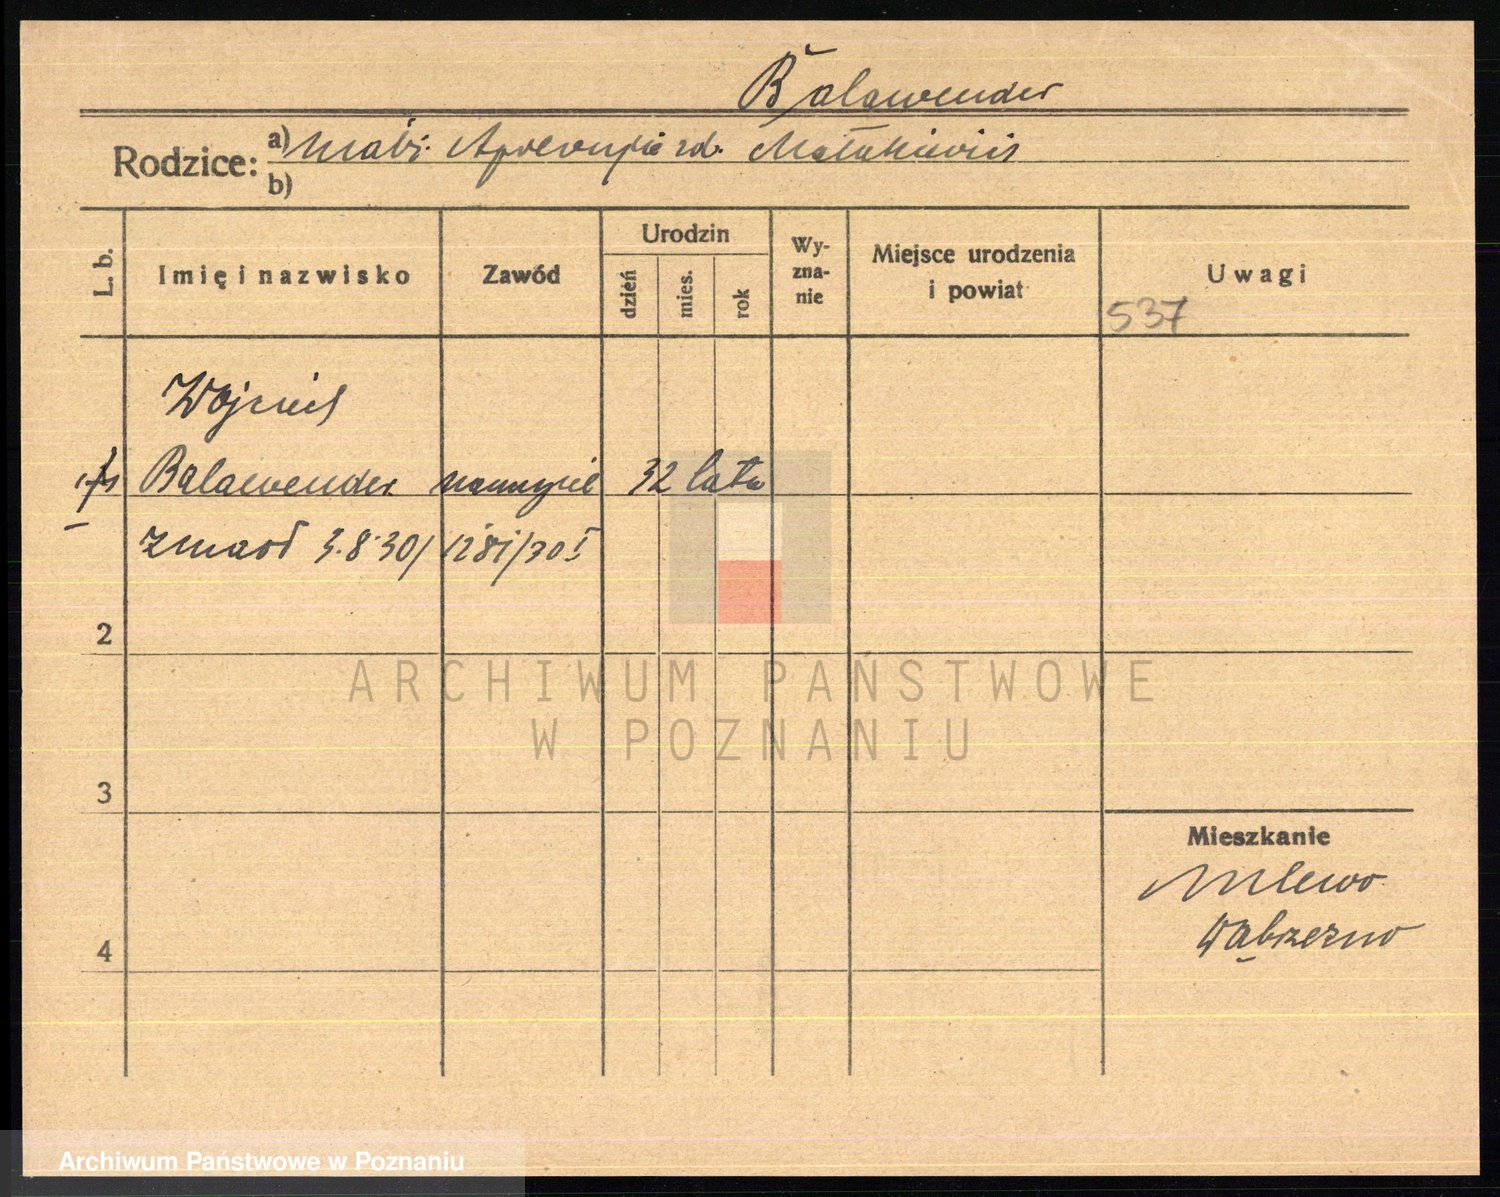 Balawender
Rodzice: a) małż. Apolonja zd.
b)
L. b.
Imię i nazwisko
Zawód
Urodzin
dzień
mies.
rok
Wy-
zna-
nie
Miejsce urodzenia
i powiat
Uwagi
537
Wojciech
Balawender nauczyciel 32 lata
zmarł 3.8.30/ 1281/30 I
2
3
4
Mieszkanie
Mlewo
Wąbrzeźno
ARCHIWUM PAŃSTWOWE
W POZNANIU
Archiwum Państwowe w Poznaniu